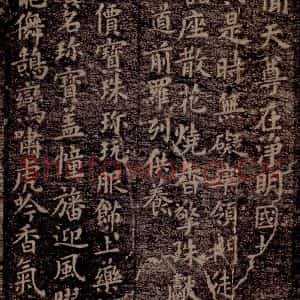 聞天尊在淨明國土
是時無礙率領門徒
座散花燒香擎珠獻
道前羅列供養
價寶珠珍玩服飾上藥
名珍寶盖幢旛迎風
鵠鸞嘯虎吟香氣